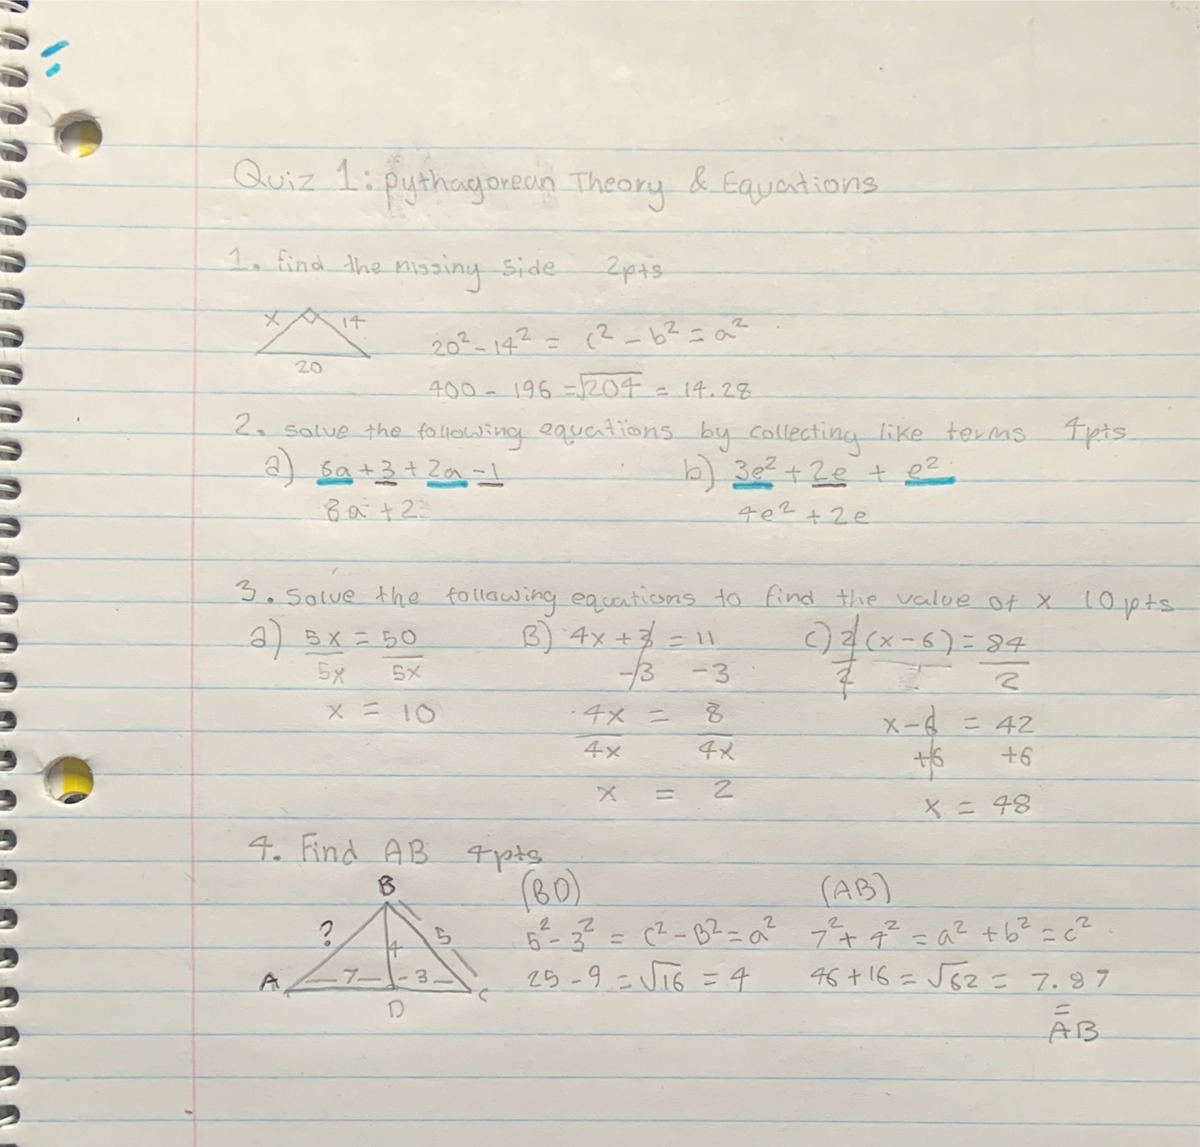 Quiz 1: pythagorean Theory & Equations
1. find the missing side 2pts
x 14
20
20² - 14² = c² - b² = a²
400 - 196 = √204 = 14.28
2. solve the following equations by collecting like terms 4pts
a) 6a + 3 + 2a - 1
8a + 2
b) 3e² + 2e + e²
4e² + 2e
3. Solve the following equations to find the value of x 10pts
a) 5x = 50
5x 5x
x = 10
B) 4x + 3 = 11
-3 -3
4x = 8
4x 4x
x = 2
c) 2(x-6) = 84
2 2
x-6 = 42
+6 +6
x = 48
4. Find AB 4pts
B
? 4 5
A 7 3 C
D
(BD)
5² - 3² = c² - B² = a²
25 - 9 = √16 = 4
(AB)
7² + 4² = a² + b² = c²
46 + 16 = √62 = 7.87
=
AB